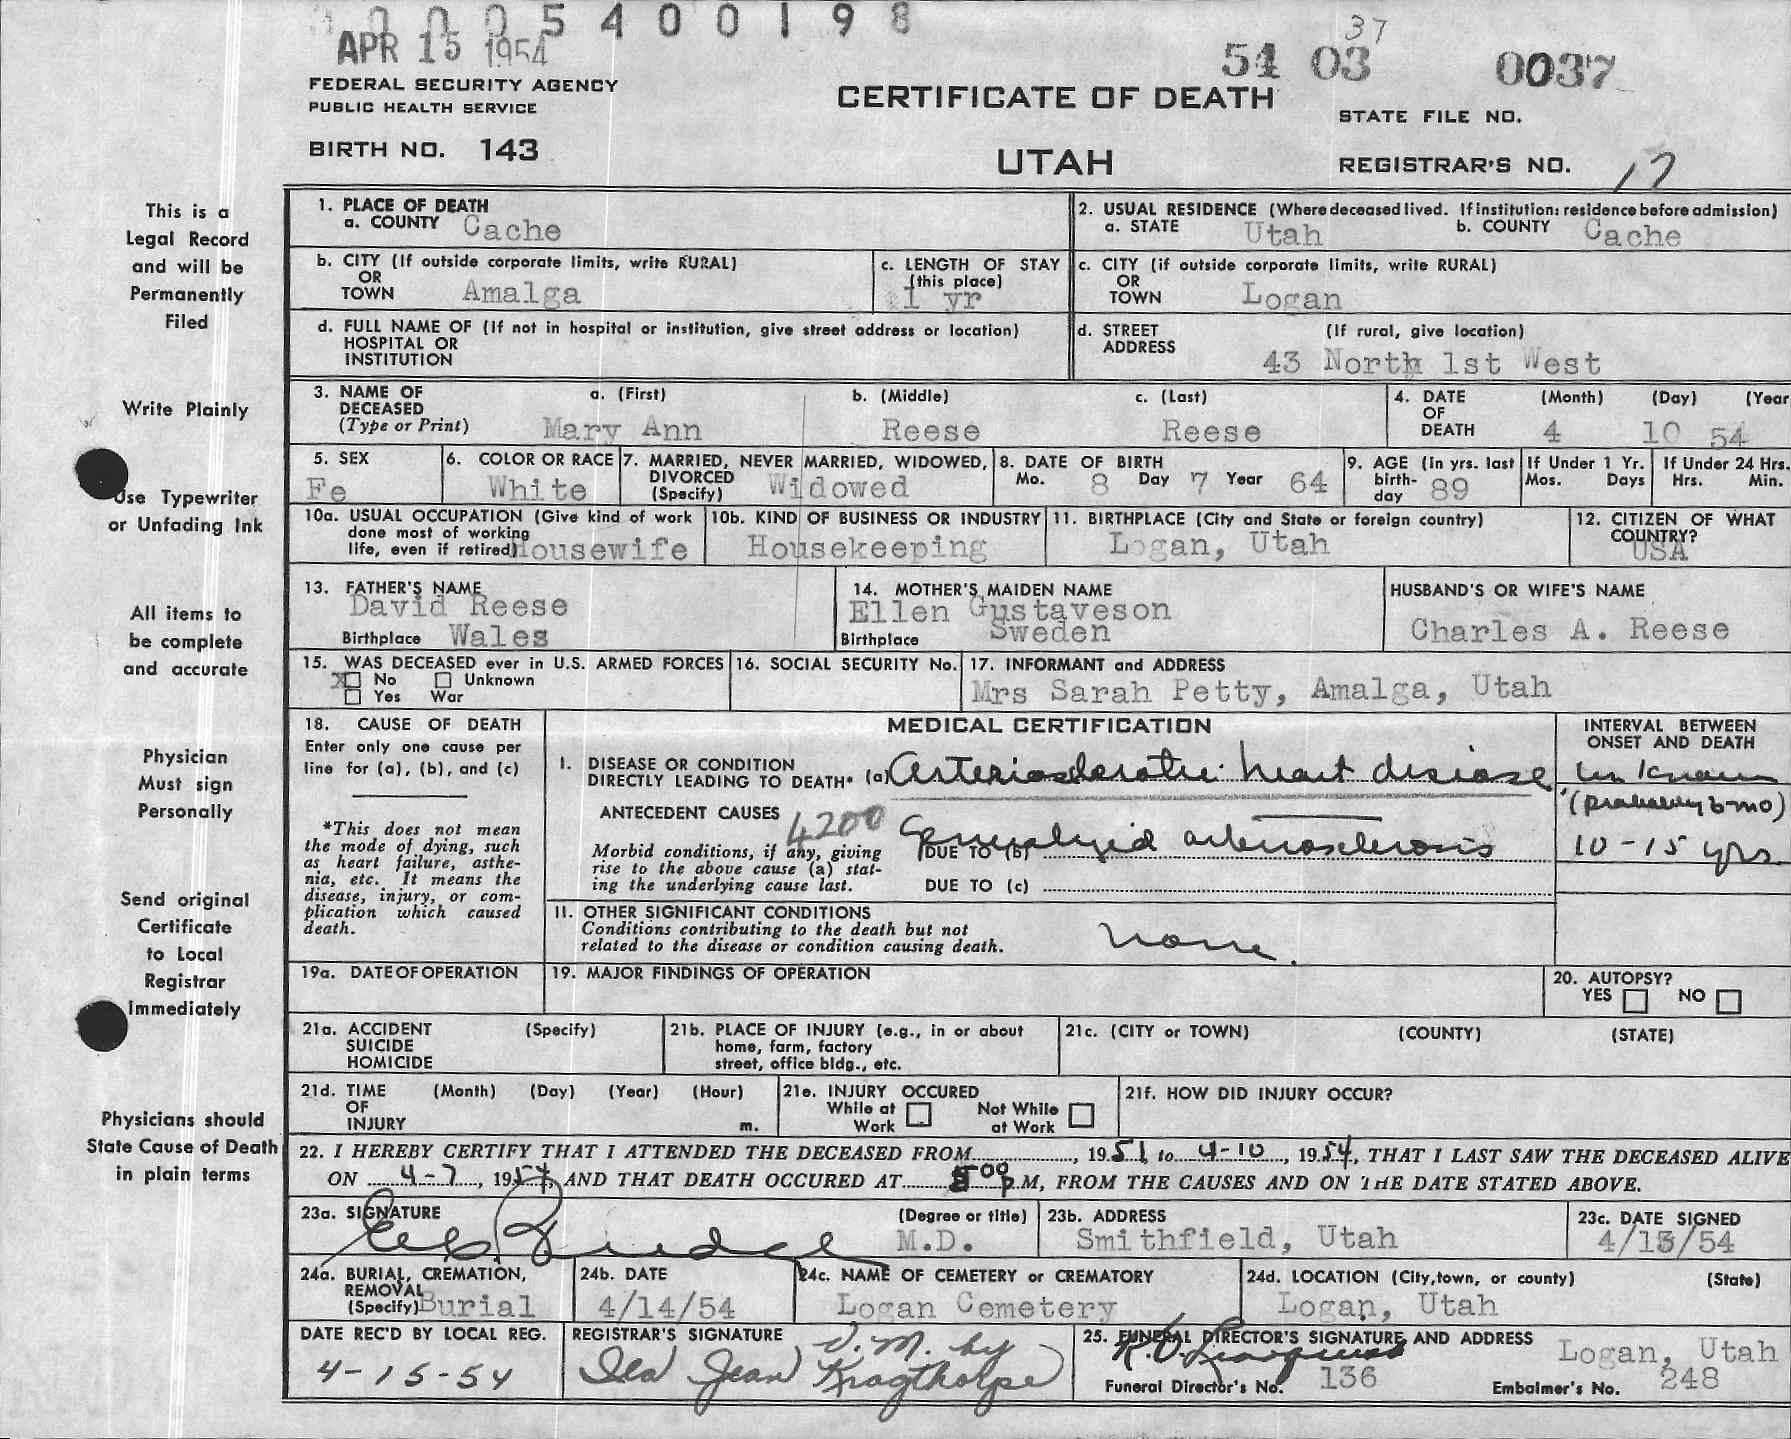 0005400198
APR 15 1954
37
54 03 0037
FEDERAL SECURITY AGENCY
PUBLIC HEALTH SERVICE
CERTIFICATE OF DEATH
STATE FILE NO.
BIRTH NO. 143
UTAH
REGISTRAR'S NO. 17
This is a
Legal Record
and will be
Permanently
Filed
Write Plainly
Use Typewriter
or Unfading Ink
All items to
be complete
and accurate
Physician
Must sign
Personally
Send original
Certificate
to Local
Registrar
Immediately
Physicians should
State Cause of Death
in plain terms
1. PLACE OF DEATH
a. COUNTY Cache
2. USUAL RESIDENCE (Where deceased lived. If institution: residence before admission)
a. STATE Utah b. COUNTY Cache
b. CITY (If outside corporate limits, write RURAL)
OR
TOWN Amalga
c. LENGTH OF STAY
(this place)
1 yr
c. CITY (if outside corporate limits, write RURAL)
OR
TOWN Logan
d. FULL NAME OF (If not in hospital or institution, give street address or location)
HOSPITAL OR
INSTITUTION
d. STREET (If rural, give location)
ADDRESS
43 North 1st West
3. NAME OF a. (First) b. (Middle) c. (Last)
DECEASED
(Type or Print) Mary Ann Reese Reese
4. DATE (Month) (Day) (Year
OF
DEATH 4 10 54
5. SEX
Fe
6. COLOR OR RACE
White
7. MARRIED, NEVER MARRIED, WIDOWED,
DIVORCED
(Specify) Widowed
8. DATE OF BIRTH
Mo. 8 Day 7 Year 64
9. AGE (In yrs. last
birth-
day 89
If Under 1 Yr.
Mos. Days
If Under 24 Hrs.
Hrs. Min.
10a. USUAL OCCUPATION (Give kind of work
done most of working
life, even if retired) Housewife
10b. KIND OF BUSINESS OR INDUSTRY
Housekeeping
11. BIRTHPLACE (City and State or foreign country)
Logan, Utah
12. CITIZEN OF WHAT
COUNTRY?
USA
13. FATHER'S NAME
David Reese
Birthplace Wales
14. MOTHER'S MAIDEN NAME
Ellen Gustaveson
Birthplace Sweden
HUSBAND'S OR WIFE'S NAME
Charles A. Reese
15. WAS DECEASED ever in U.S. ARMED FORCES
X No Unknown
Yes War
16. SOCIAL SECURITY No.
17. INFORMANT and ADDRESS
Mrs Sarah Petty, Amalga, Utah
18. CAUSE OF DEATH
Enter only one cause per
line for (a), (b), and (c)
*This does not mean
the mode of dying, such
as heart failure, asthe-
nia, etc. It means the
disease, injury, or com-
plication which caused
death.
MEDICAL CERTIFICATION
INTERVAL BETWEEN
ONSET AND DEATH
I. DISEASE OR CONDITION
DIRECTLY LEADING TO DEATH* (a) Arteriosclerotic heart disease
unknown
(probably 6 mo)
ANTECEDENT CAUSES
4200
Morbid conditions, if any, giving
rise to the above cause (a) stat-
ing the underlying cause last.
DUE TO (b) Generalized arteriosclerosis
10-15 yrs.
DUE TO (c)
II. OTHER SIGNIFICANT CONDITIONS
Conditions contributing to the death but not
related to the disease or condition causing death.
none.
19a. DATE OF OPERATION
19. MAJOR FINDINGS OF OPERATION
20. AUTOPSY?
YES NO
21a. ACCIDENT (Specify)
SUICIDE
HOMICIDE
21b. PLACE OF INJURY (e.g., in or about
home, farm, factory
street, office bldg., etc.
21c. (CITY or TOWN) (COUNTY) (STATE)
21d. TIME (Month) (Day) (Year) (Hour)
OF
INJURY m.
21e. INJURY OCCURED
While at Not While
Work at Work
21f. HOW DID INJURY OCCUR?
22. I HEREBY CERTIFY THAT I ATTENDED THE DECEASED FROM, 1951, to 4-10, 1954, THAT I LAST SAW THE DECEASED ALIVE
ON 4-7, 1954, AND THAT DEATH OCCURED AT 5 00 p M, FROM THE CAUSES AND ON THE DATE STATED ABOVE.
23a. SIGNATURE (Degree or title)
M.D.
23b. ADDRESS
Smithfield, Utah
23c. DATE SIGNED
4/13/54
24a. BURIAL, CREMATION,
REMOVAL
(Specify) Burial
24b. DATE
4/14/54
24c. NAME OF CEMETERY or CREMATORY
Logan Cemetery
24d. LOCATION (City, town, or county) (State)
Logan, Utah
DATE REC'D BY LOCAL REG.
4-15-54
REGISTRAR'S SIGNATURE
D.M. by
Ila Jean Kragthorpe
25. FUNERAL DIRECTOR'S SIGNATURE AND ADDRESS
Logan, Utah
Funeral Director's No. 136
Embalmer's No. 248